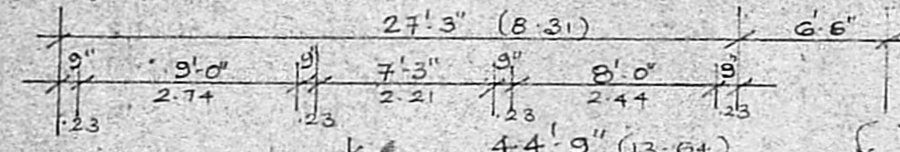 27'-3" (8.31) 6'-6"
9" 9'-0" 9" 7'-3" 9" 8'-0" 9"
.23 2.74 .23 2.21 .23 2.44 .23
44'-9" (13.64)